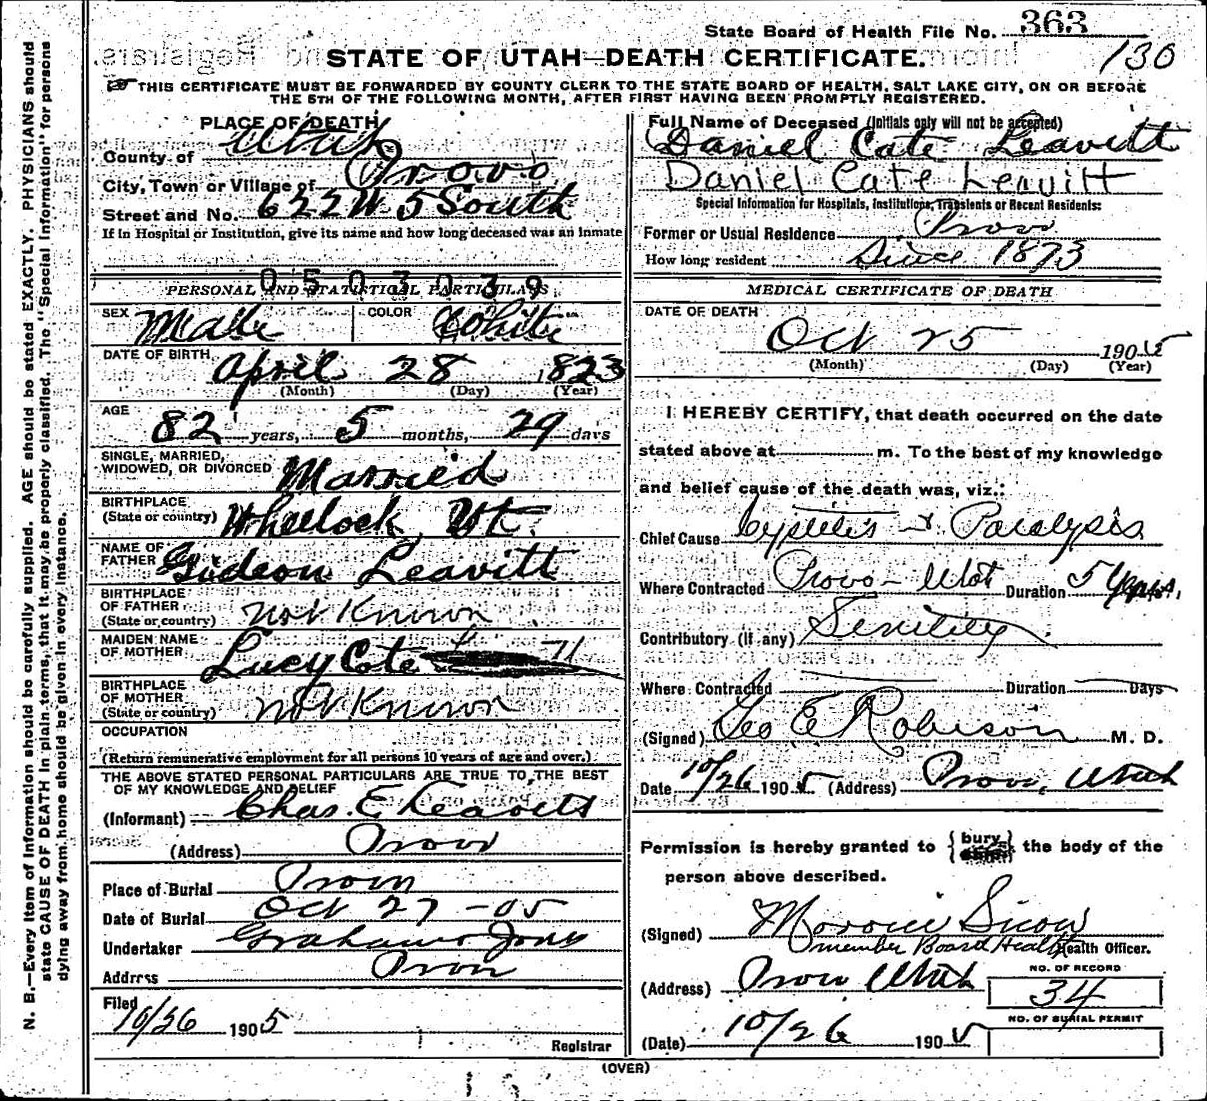 State Board of Health File No. 363
130
STATE OF UTAH—DEATH CERTIFICATE.
THIS CERTIFICATE MUST BE FORWARDED BY COUNTY CLERK TO THE STATE BOARD OF HEALTH, SALT LAKE CITY, ON OR BEFORE
THE 5TH OF THE FOLLOWING MONTH, AFTER FIRST HAVING BEEN PROMPTLY REGISTERED.
PLACE OF DEATH
County of Utah
City, Town or Village of Provo
Street and No. 622 W 5 South
If in Hospital or Institution, give its name and how long deceased was an inmate
0503039
PERSONAL AND STATISTICAL PARTICULARS
SEX Male COLOR White
DATE OF BIRTH April 28 1823
(Month) (Day) (Year)
AGE
82 years, 5 months, 29 days
SINGLE, MARRIED,
WIDOWED, OR DIVORCED Married
BIRTHPLACE
(State or country) Wheelock Vt.
NAME OF
FATHER Gideon Leavitt
BIRTHPLACE
OF FATHER
(State or country) Not Known
MAIDEN NAME
OF MOTHER Lucy Cate
BIRTHPLACE
OF MOTHER
(State or country) Not Known
OCCUPATION
(Return remunerative employment for all persons 10 years of age and over.)
THE ABOVE STATED PERSONAL PARTICULARS ARE TRUE TO THE BEST
OF MY KNOWLEDGE AND BELIEF
(Informant) Chas. E Leavitt
(Address) Provo
Place of Burial Provo
Date of Burial Oct 27 -05
Undertaker Graham Jones
Address Provo
Filed
10/26 1905
Registrar
Full Name of Deceased (Initials only will not be accepted)
Daniel Cate Leavitt
Daniel Cate Leavitt
Special Information for Hospitals, Institutions, Transients or Recent Residents:
Former or Usual Residence Provo
How long resident Since 1873
MEDICAL CERTIFICATE OF DEATH
DATE OF DEATH
Oct 25 1905
(Month) (Day) (Year)
I HEREBY CERTIFY, that death occurred on the date
stated above at m. To the best of my knowledge
and belief cause of the death was, viz.:
Chief Cause Cystitis & Paralysis
Where Contracted Provo - Utah Duration 5 Years,
Contributory (if any) Senility
Where Contracted Duration Days
(Signed) Geo E Robison M. D.
Date 10/26 1905 (Address) Provo, Utah
Permission is hereby granted to {bury} the body of the
person above described.
(Signed) Moroni Snow
member Board Health Health Officer.
(Address) Provo Utah
NO. OF RECORD
34
NO. OF BURIAL PERMIT
(Date) 10/26 1905
(OVER)
N. B.—Every item of information should be carefully supplied. AGE should be stated EXACTLY. PHYSICIANS should
state CAUSE OF DEATH in plain terms, that it may be properly classified. The "Special Information" for persons
dying away from home should be given in every instance.